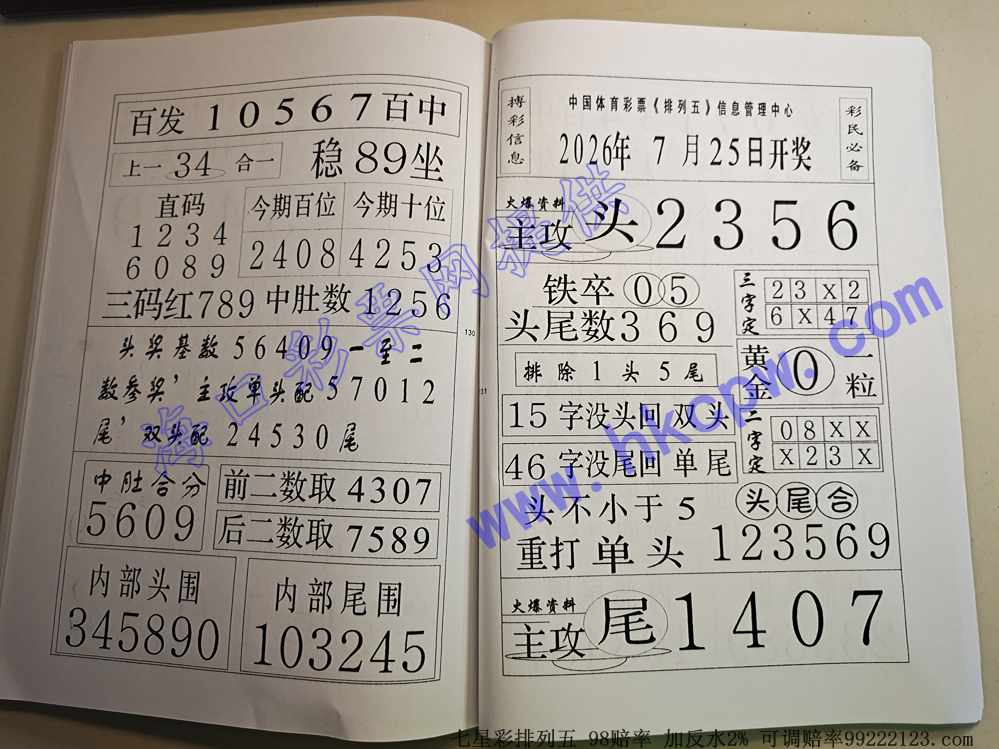 百发 10567 百中
上一 34 合一
稳 89 坐
直码
1 2 3 4
6 0 8 9
今期百位
2408
今期十位
4253
三码红 789 中肚数 1256
头奖基数 56409 一至二
数参奖’ 主攻单头配 57012
尾’ 双头配 24530 尾
中肚合分
5609
前二数取 4307
后二数取 7589
内部头围
345890
内部尾围
103245
130
搏彩信息
中国体育彩票《排列五》信息管理中心
2026年 7 月25日开奖
彩民必备
火爆资料
主攻 头 2 3 5 6
铁卒 0 5
头尾数 3 6 9
三字定
2 3 X 2
6 X 4 7
排除 1 头 5 尾
黄金 0 一粒
15 字没头回 双头
46 字没尾回 单尾
二字定
0 8 X X
X 2 3 X
头不小于 5
头尾合
重打 单头 123569
火爆资料
主攻 尾 1 4 0 7
31
海口彩票网提供
www.hkcpw.com
七星彩排列五 98赔率 加反水2% 可调赔率99222123.com